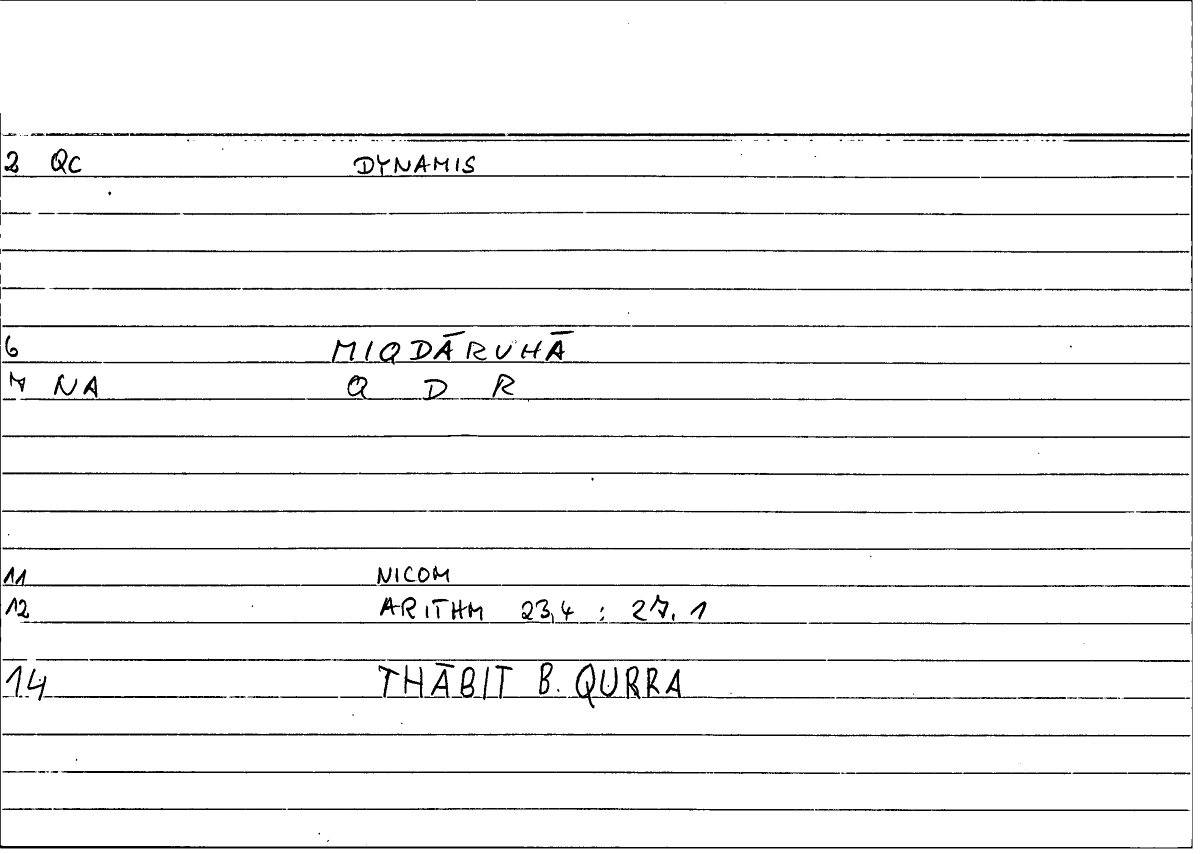 2 QC DYNAMIS
6 MIQDĀRUHĀ
7 NA Q D R
11 NICOM
12 ARITHM 23,4 : 27.1
14 THĀBIT B. QURRA